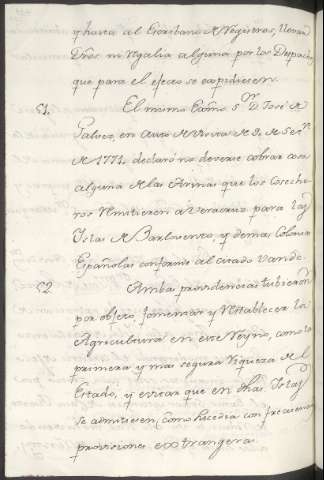 y hasta al Escribano de Registros, llevar
Dros ni regalia alguna por los Despachos
que para el efecto se expidiesen.
51. El mismo Exmo. Sor. D. Josef de
Galvez, en Auto de Visita de 9 de Sere.
de 1771. declaró no deverse cobrar cosa
alguna de las Arinas que los Coseche-
ros remitieren a Veracruz para las
Islas de Barlovento, y demas Colonias
Españolas conforme al citado Vando.
52. Ambas providencias tubieron
por objeto, fomentar y restablecer la
Agricultura en este Reyno, como la
primera y mas segura riqueza del
Estado, y evitar que en dhas. Islas
se admitiesen, como sucedia con frecuencia
provisiones extrangeras.